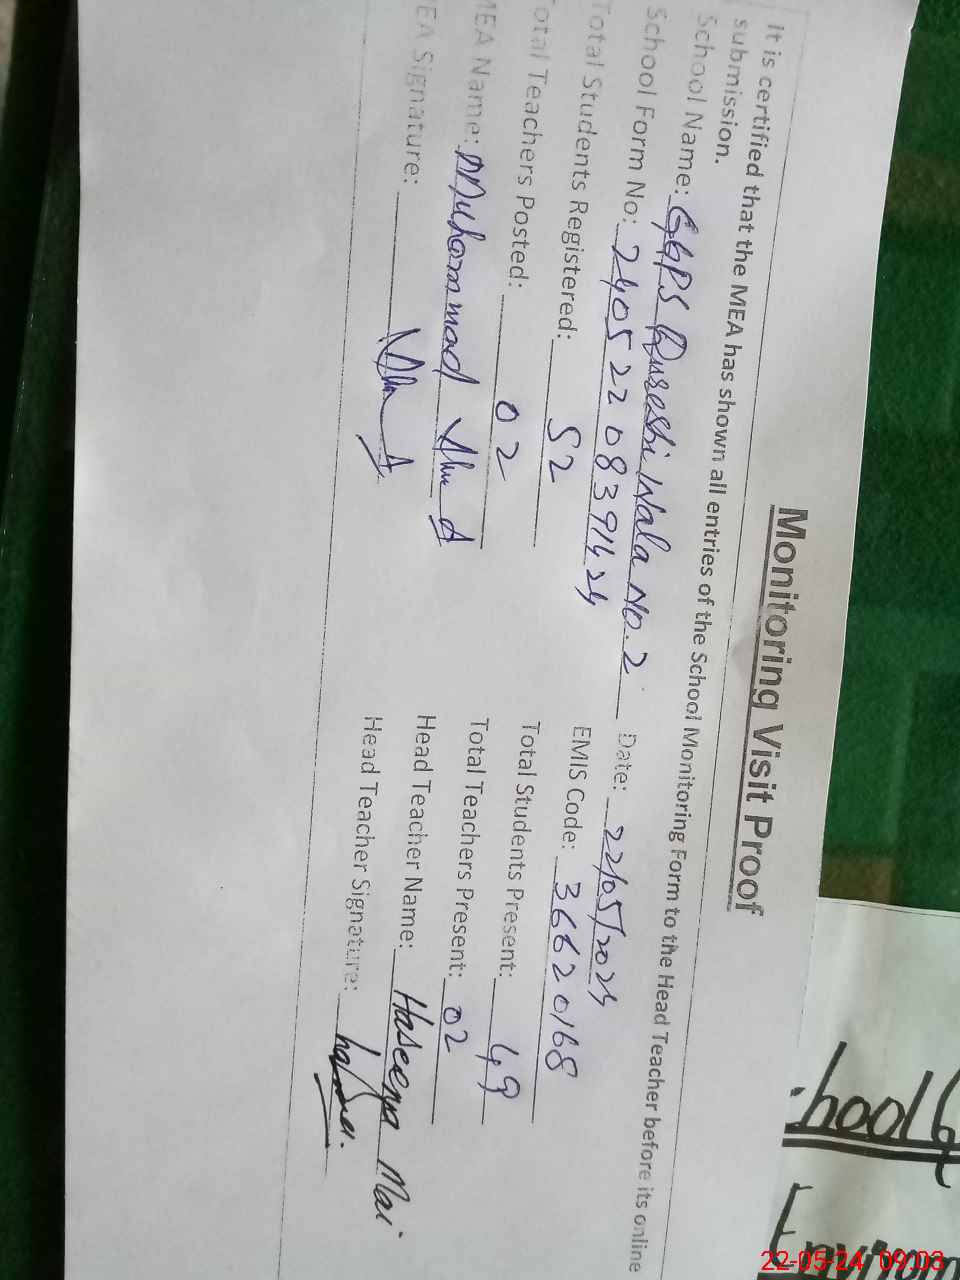 Monitoring Visit Proof
It is certified that the MEA has shown all entries of the School Monitoring Form to the Head Teacher before its online
submission.
School Name: GGPS Qureshi Wala No. 2 Date: 22/05/2024
School Form No: 2405220839 EMIS Code: 36620168
Total Students Registered: 52 Total Students Present: 49
otal Teachers Posted: 02 Total Teachers Present: 02
MEA Name: Muhammad Head Teacher Name: Haseena Mai
EA Signature: Head Teacher Signature:
hool
Environ
22-05-24 09:03